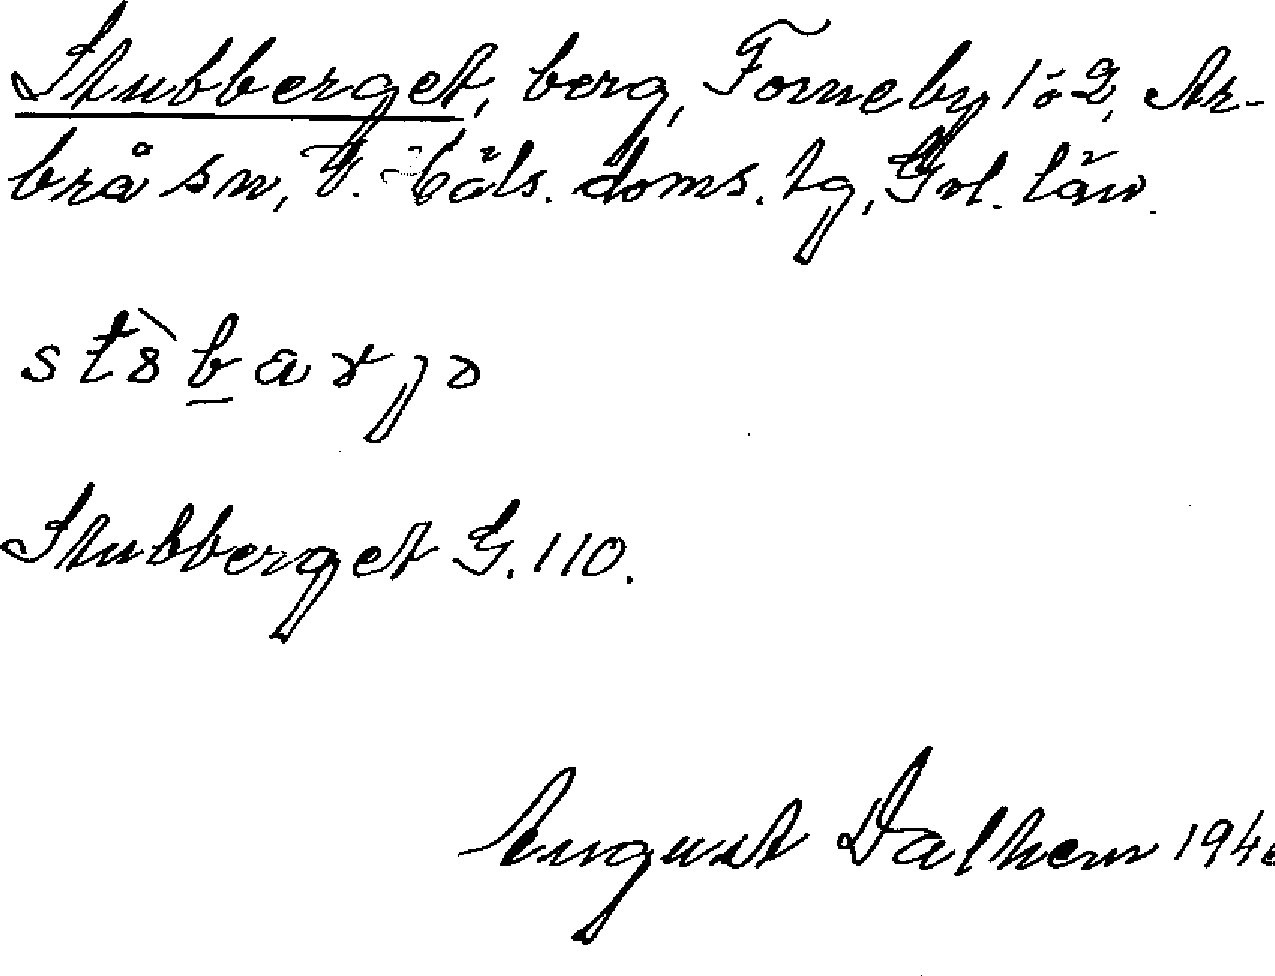 Stubberget, berg, Forneby 1 o 2, Ar-
brå sn, V. Häls. doms. tg, Gvl. län.
Stubberget G. 110.
August Dalhem